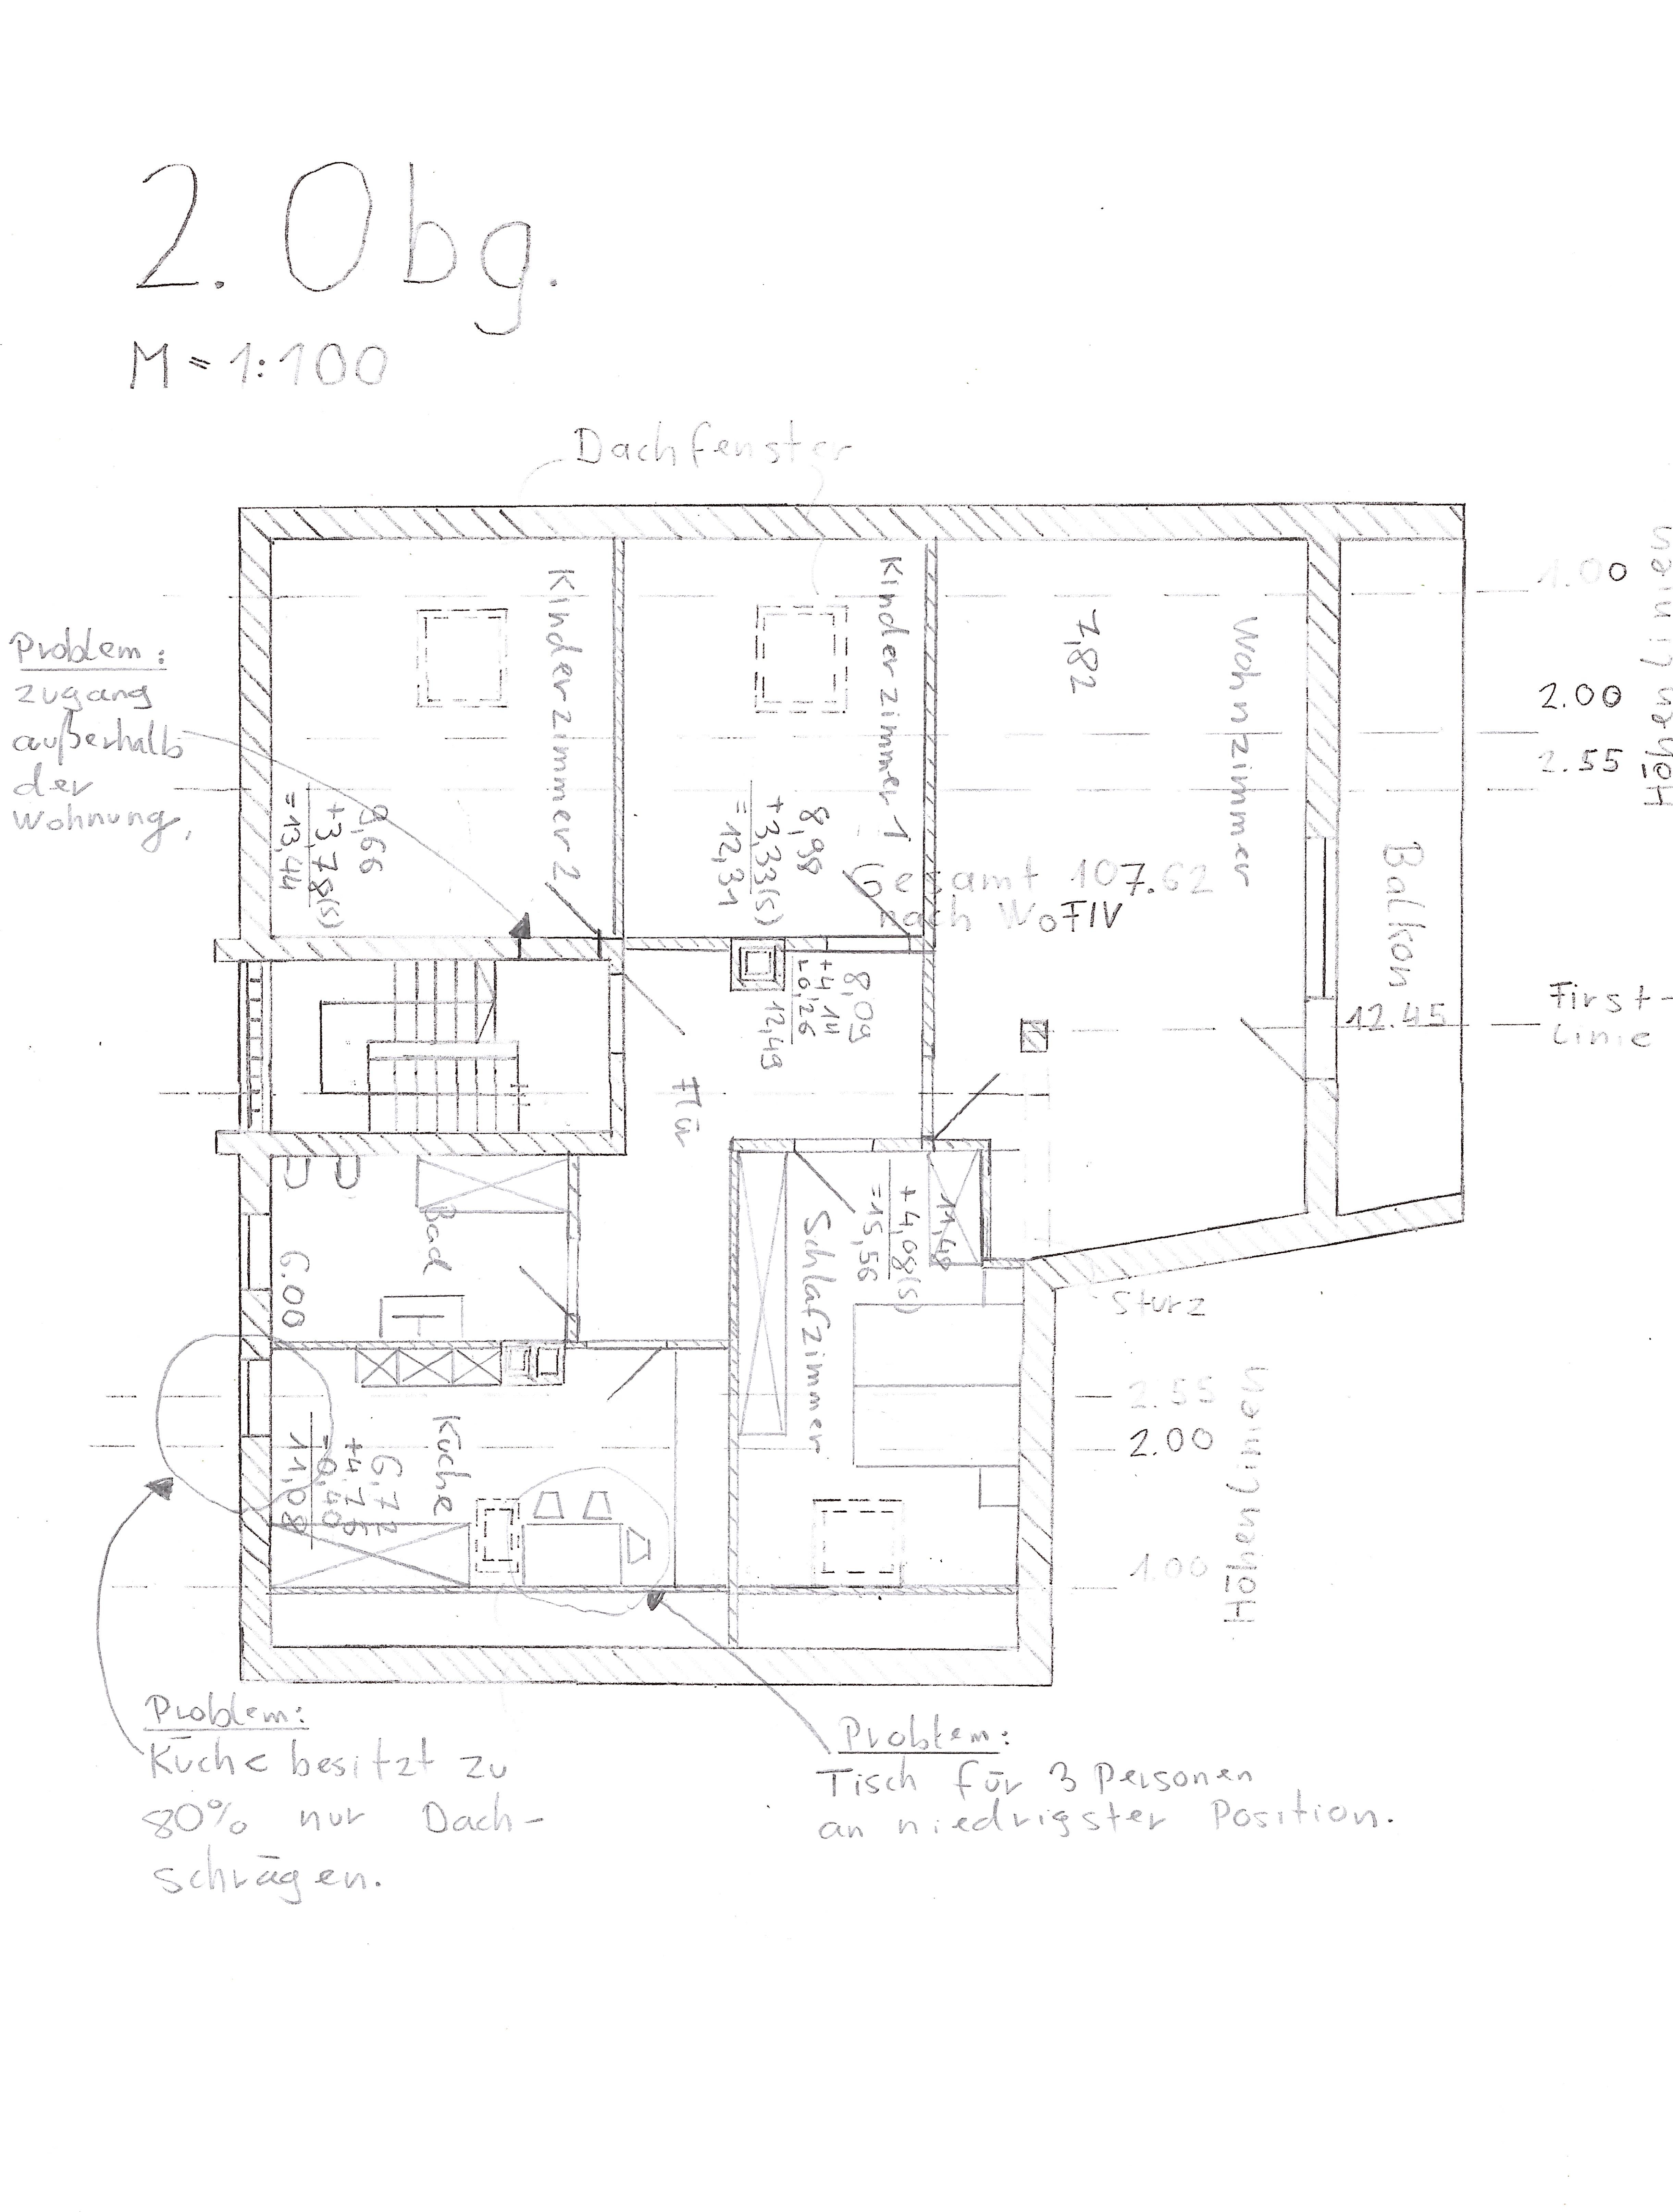 2. Obg.
M = 1:100
Dachfenster
Problem:
zugang
außerhalb
der
Wohnung,
Kinderzimmer 2
9,66
+3,78(s)
=13,44
Kinderzimmer 1
8,98
+3,33(s)
=12,31
Wohnzimmer
7,82
Gesamt 107.62
nach WoFIV
Balkon
12.45
1.00
2.00
2.55
Höhenlinien
First-
Linie
8,09
12,49
Flu
Bad
6.00
Schlafzimmer
11,48
+4,08(s)
=15,56
Sturz
Küche
6,72
+4,76
-0,40
11,08
2.55
2.00
1.00
Höhenlinien
Problem:
Küche besitzt zu
80% nur Dach-
schrägen.
Problem:
Tisch für 3 Personen
an niedrigster Position.